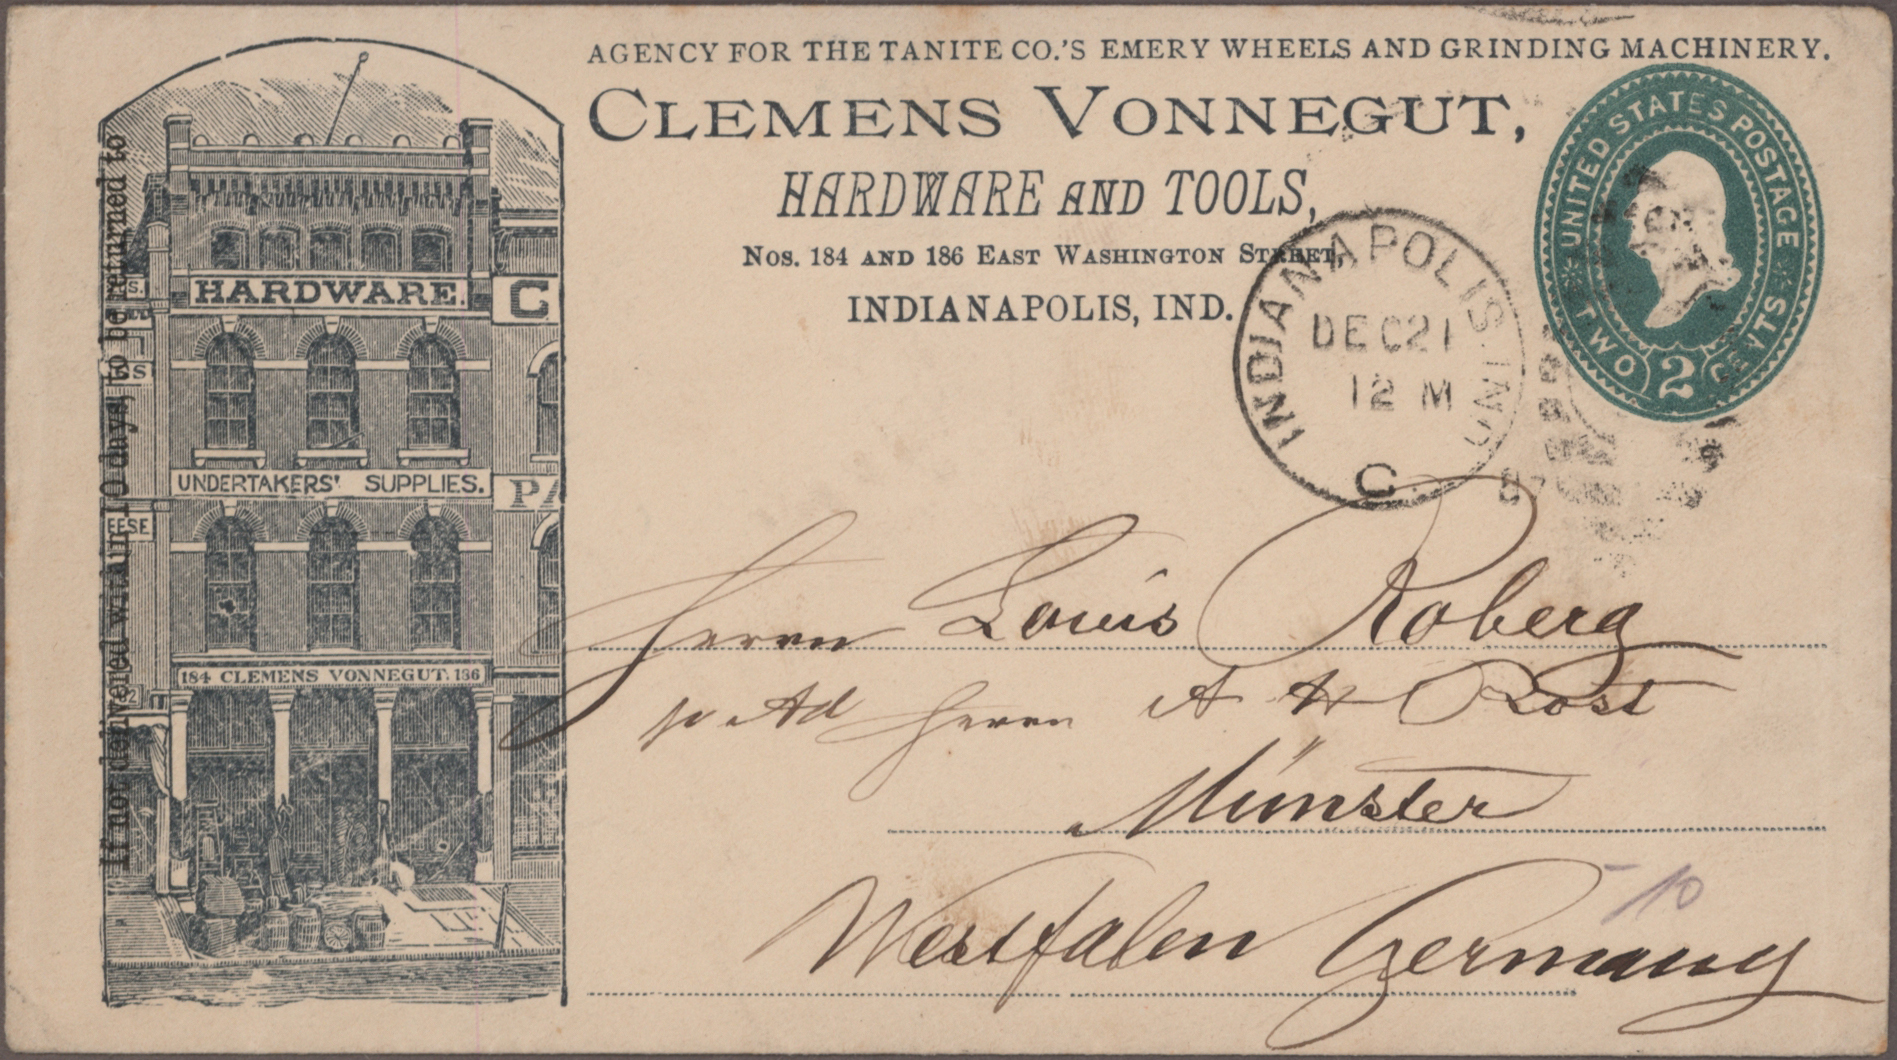 AGENCY FOR THE TANITE CO.'S EMERY WHEELS AND GRINDING MACHINERY.
CLEMENS VONNEGUT,
HARDWARE AND TOOLS,
Nos. 184 AND 186 EAST WASHINGTON STREET,
INDIANAPOLIS, IND.
UNITED STATES POSTAGE
TWO 2 CENTS
INDIANAPOLIS IND.
DEC 21
12 M
87
C
If not delivered within 10 days, to be returned to
HARDWARE.
C
S.
GS
UNDERTAKERS' SUPPLIES.
PA
EESE
184 CLEMENS VONNEGUT. 186
Herrn Louis Roberg
pr Ad Herrn A H Rost
Münster
Westfalen Germany
10